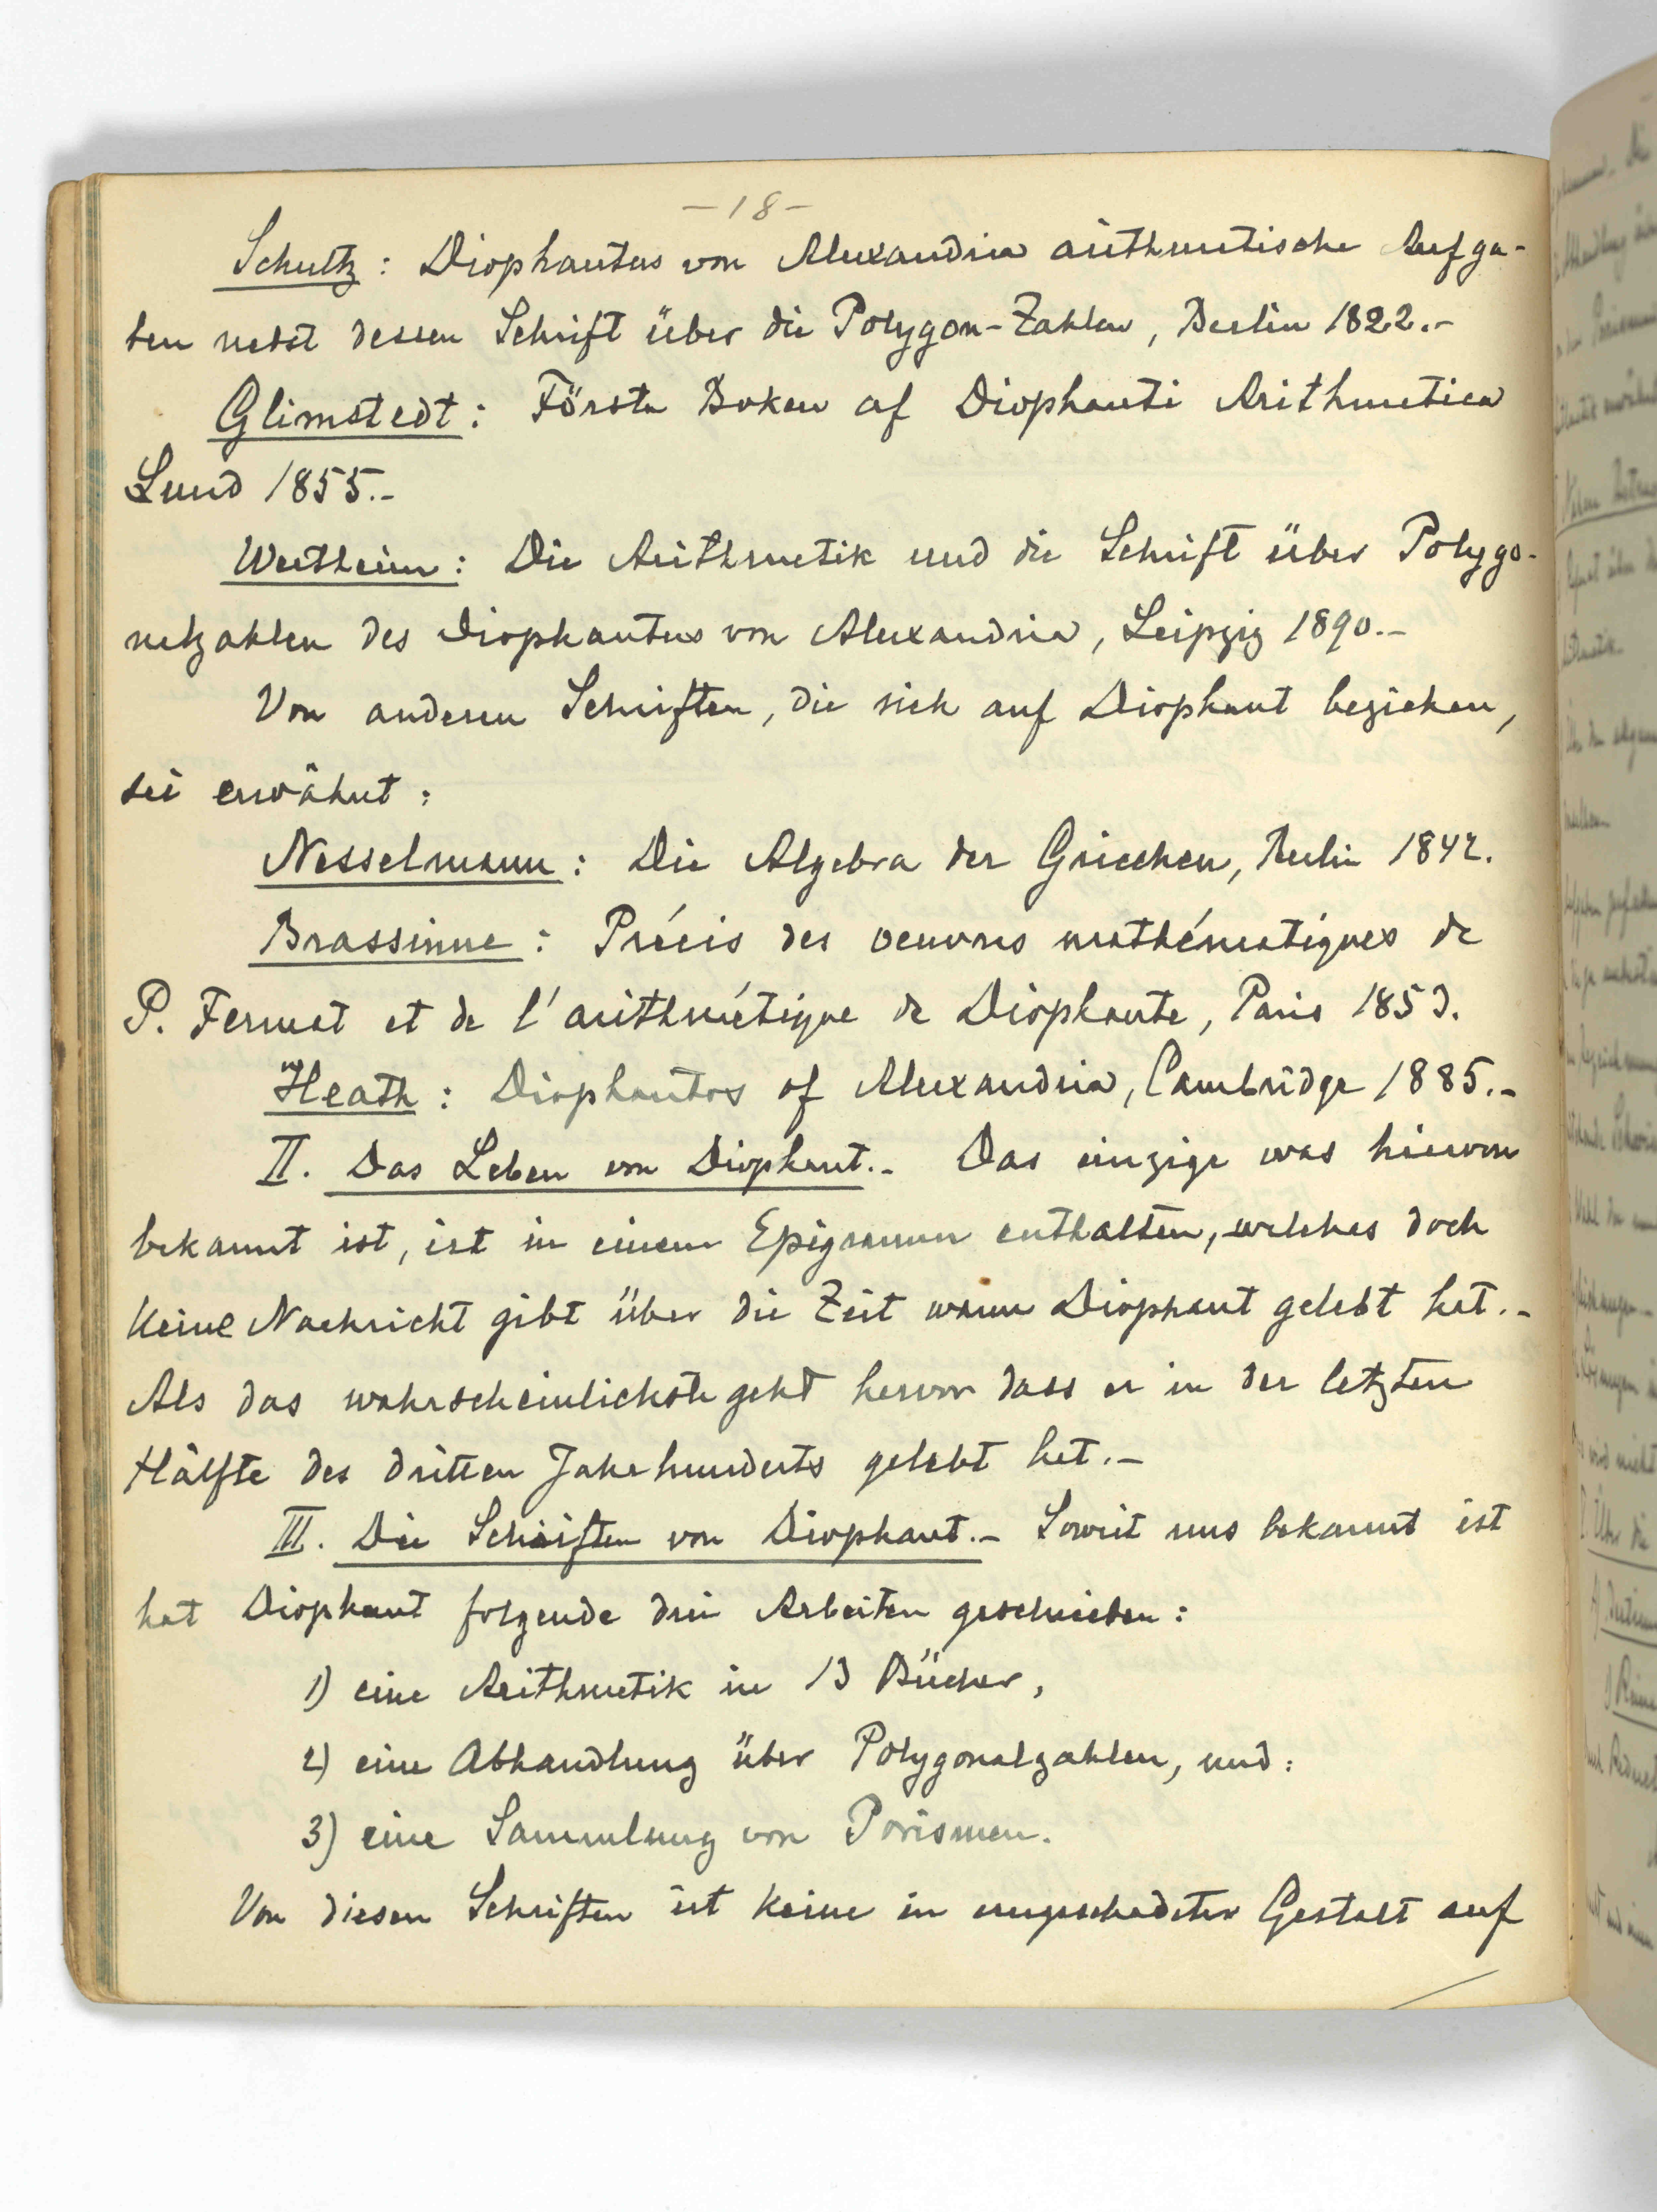 -18-
Schultz : Diophantus von Alexandria arithmetische Aufga-
ben nebst dessen Schrift über die Polygon-Zahlen, Berlin 1822.-
Glimstedt : Första Boken af Diophanti Arithmetica
Lund 1855.-
Wertheim : Die Arithmetik und die Schrift über Polygo-
nalzahlen des Diophantus von Alexandria, Leipzig 1890.-
Von anderen Schriften, die sich auf Diophant beziehen,
sei erwähnt :
Nesselmann : Die Algebra der Griechen, Berlin 1842.
Brassinne : Précis des oeuvres mathématiques de
P. Fermat et de l'arithmétique de Diophante, Paris 1853.
Heath : Diophantos of Alexandria, Cambridge 1885.-
II. Das Leben von Diophant.- Das einzige was hiervon
bekannt ist, ist in einem Epigramm enthalten, welches doch
keine Nachricht gibt über die Zeit wann Diophant gelebt hat.-
Als das wahrscheinlichste geht hervor dass er in der letzten
Hälfte des dritten Jahrhunderts gelebt hat.-
III. Die Schriften von Diophant.- Soweit uns bekannt ist
hat Diophant folgende drei Arbeiten geschrieben :
1) eine Arithmetik in 13 Bücher,
2) eine Abhandlung über Polygonalzahlen, und :
3) eine Sammlung von Porismen.
Von diesen Schriften ist keine in ungeschadeter Gestalt auf